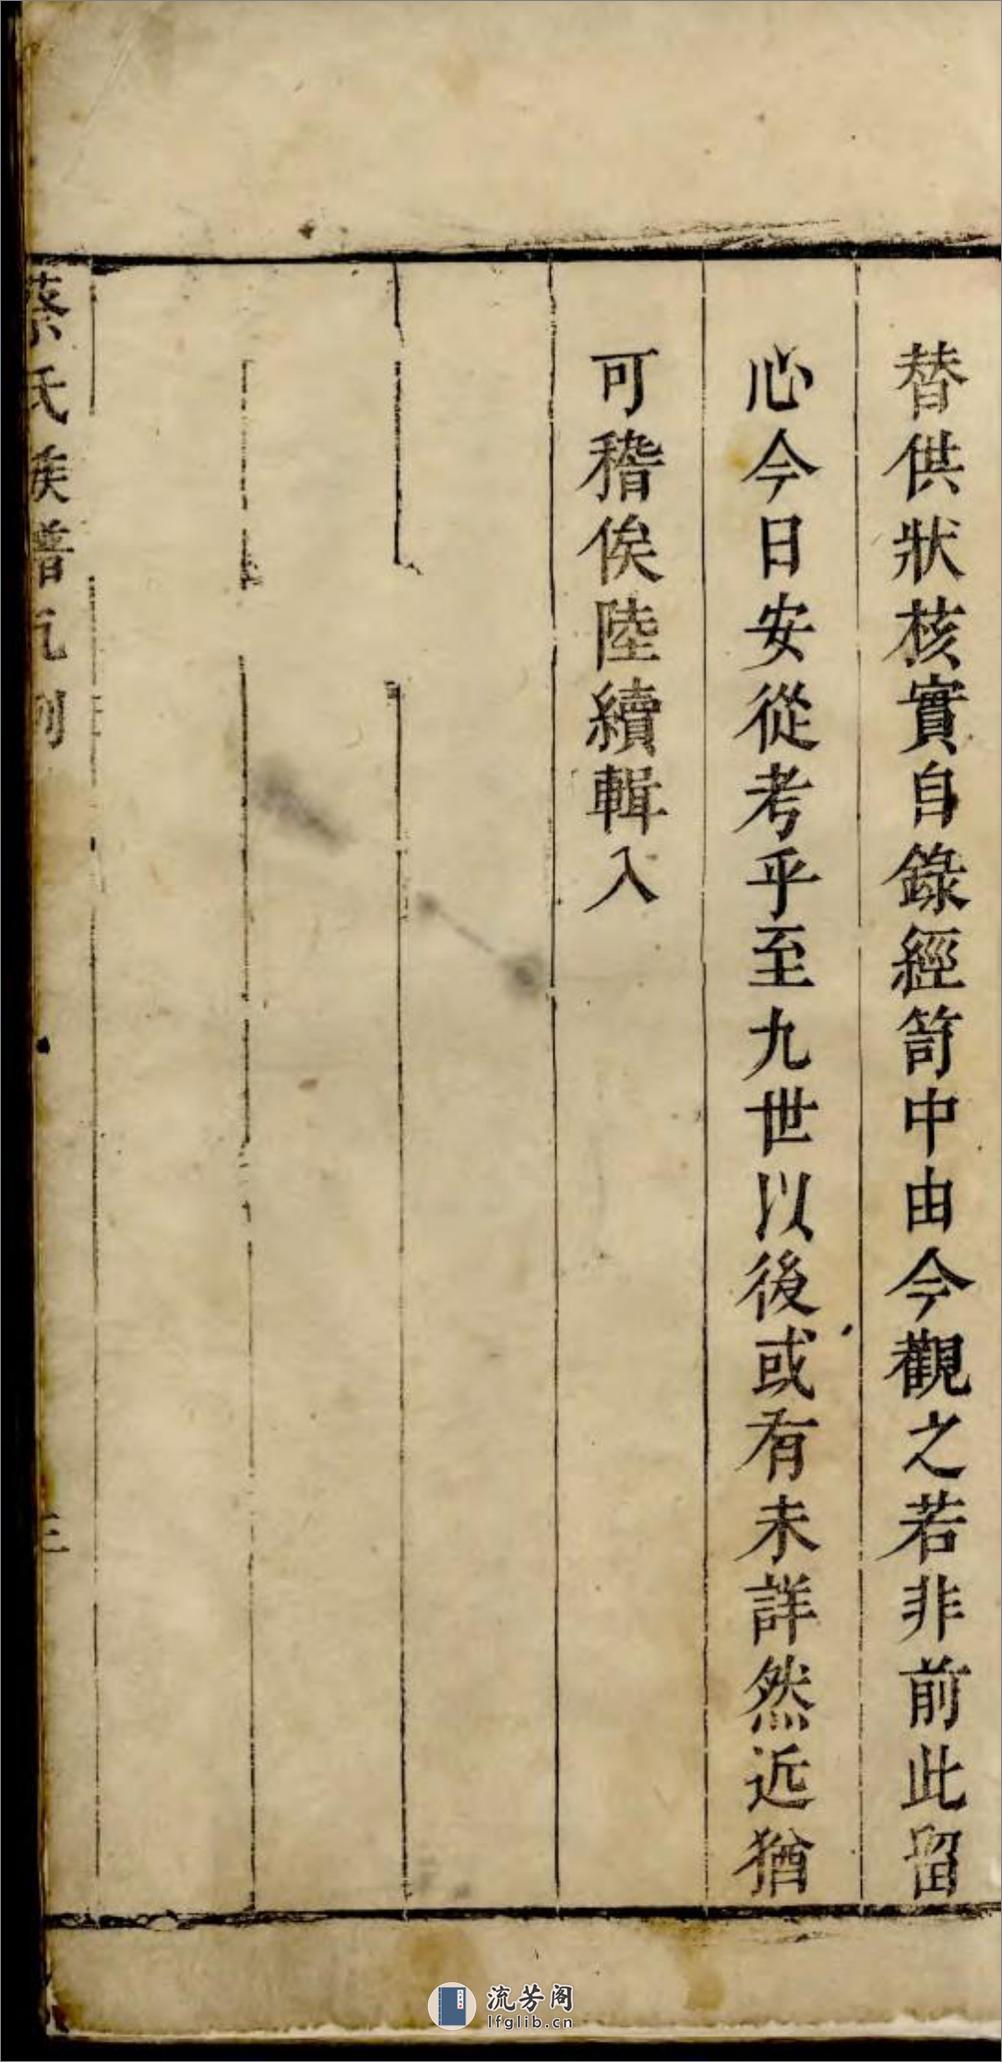 替供狀核實自錄經笥中由今觀之若非前此留
心今日安從考乎至九世以後或有未詳然近猶
可稽俟陸續輯入
蔡氏族譜凡例
三
流芳阁
lfglib.cn